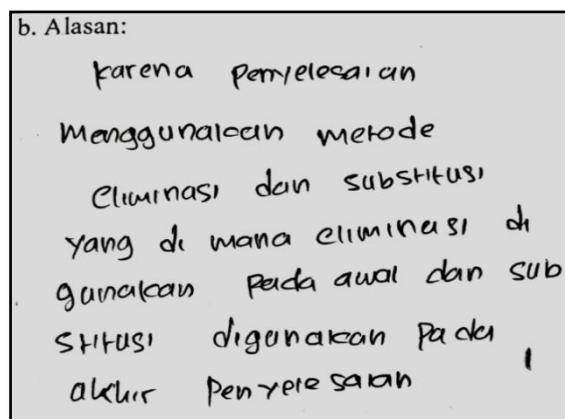 b. Alasan:
karena penyelesaian
menggunakan metode
eliminasi dan substitusi
yang di mana eliminasi di
gunakan pada awal dan sub
stitusi digunakan pada
akhir penyelesaian